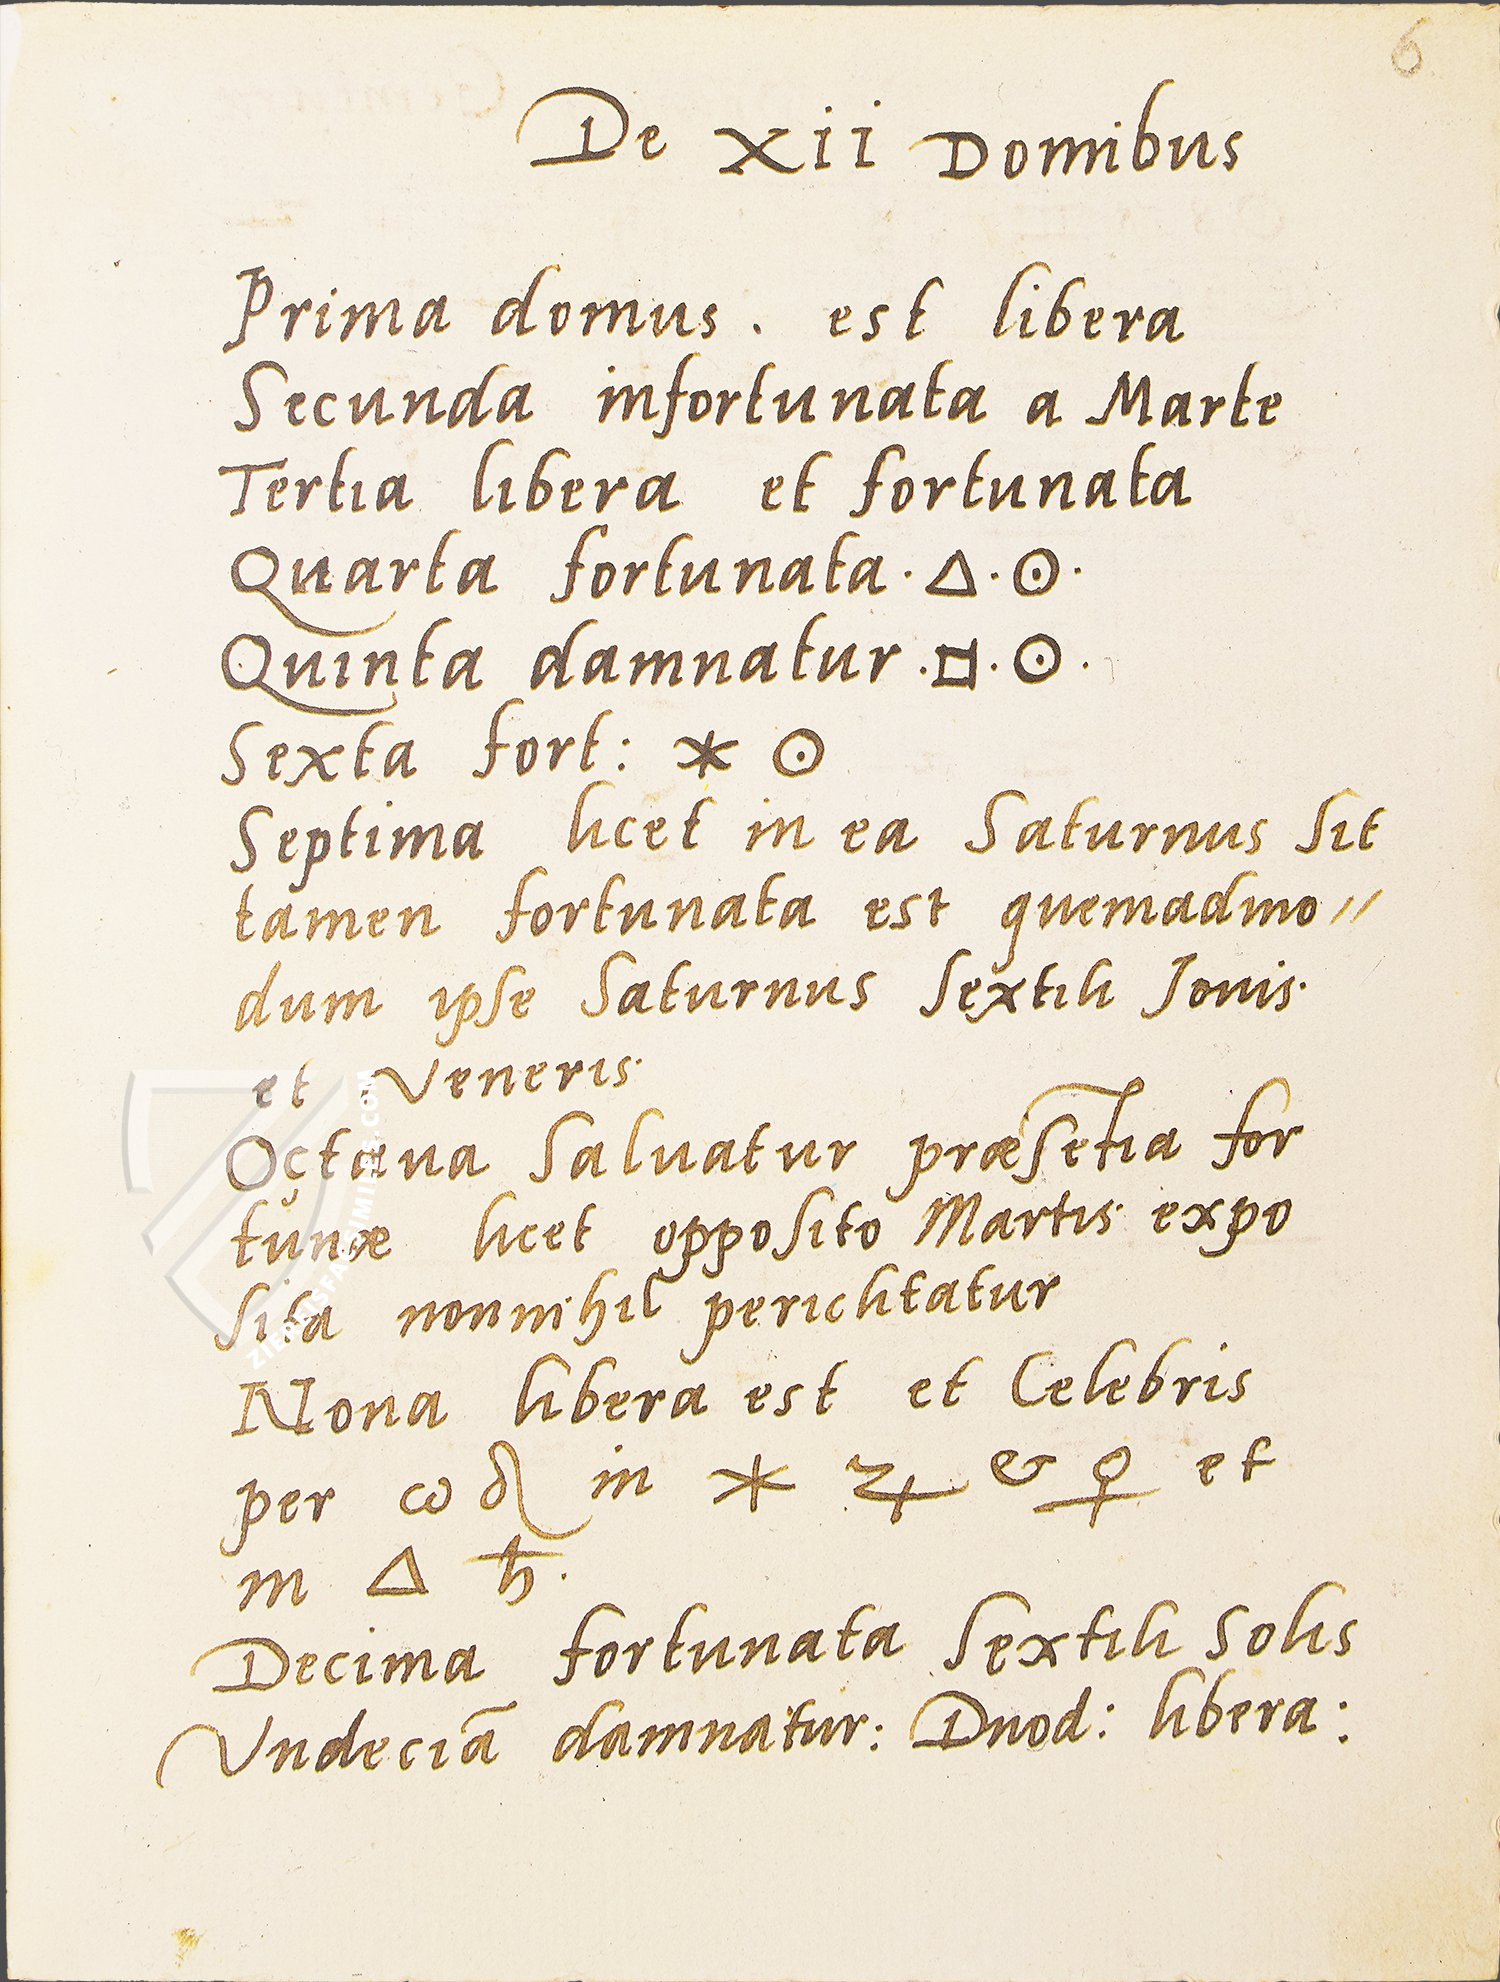 6
De xii Domibus
Prima domus . est libera
Secunda infortunata a Marte
Tertia libera et fortunata
Quarta fortunata · △ · ☉ ·
Quinta damnatur · □ · ☉ ·
Sexta fort: ⚹ ☉
Septima licet in ea Saturnus sit
tamen fortunata est quemadmo〃
dum ipse Saturnus sextili Jouis·
et Veneris·
Octaua saluatur præsētia for
tunæ licet opposito Martis· expo
sita nonnihil periclitatur
Nona libera est et Celebris
per ☋ in ⚹ ♃ & ♀ et
in △ ♄ .
Decima fortunata sextili Solis
Vndeciā damnatur: Duod: libera:
ZIEREISFACSIMILES.COM